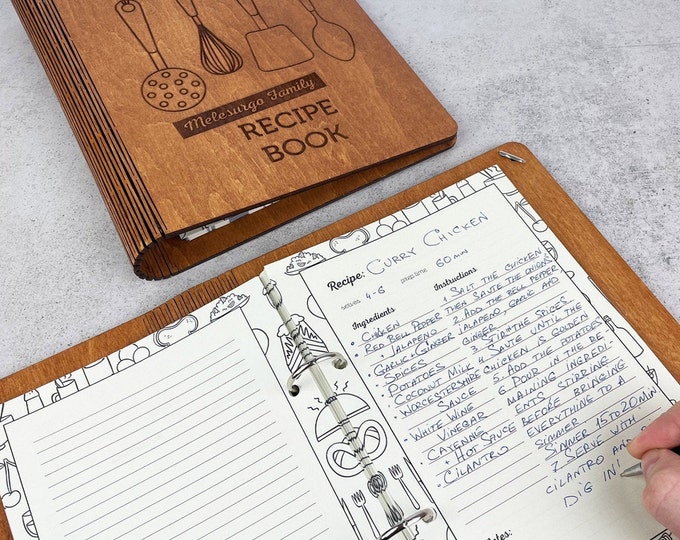 Melesurgo Family
RECIPE
BOOK
Recipe: CURRY CHICKEN
serves 4-6 prep time 60 mins
Ingredients
Instructions
• CHICKEN
• RED BELL PEPPER
• JALAPENO
• GARLIC + GINGER
• SPICES
• POTATOES
• COCONUT MILK
• WORCESTERSHIRE
SAUCE
• WHITE WINE
VINEGAR
• CAYENNE
+ HOT SAUCE
• CILANTRO
1 SALT THE CHICKEN
THEN SAUTE THE ONIONS
2 ADD THE BELL PEPPER,
JALAPENO, GARLIC AND
GINGER
3 STIR THE SPICES
4 SAUTE UNTIL THE
CHICKEN IS GOLDEN
5 ADD THE POTATOES
6 POUR IN THE RE-
MAINING INGREDI-
ENTS STIRRING
BEFORE BRINGING
EVERYTHING TO A
SIMMER
SIMMER 15 TO 20 MIN
7 SERVE WITH
CILANTRO AND
DIG IN!
Notes: